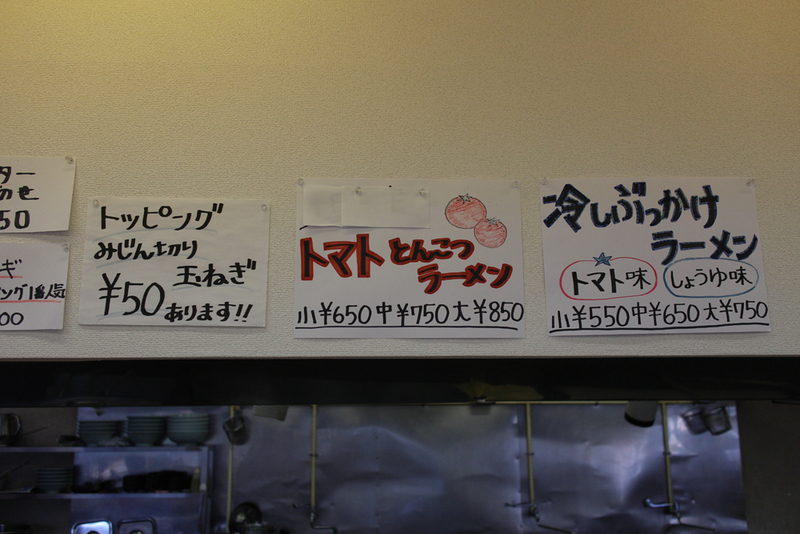 ター
のせ
50
ギ
ング1番人気
00
トッピング
みじん切り
玉ねぎ
¥50 あります!!
トマト とんこつ
ラーメン
小¥650 中¥750 大¥850
冷しぶっかけ
ラーメン
トマト味 しょうゆ味
小¥550 中¥650 大¥750